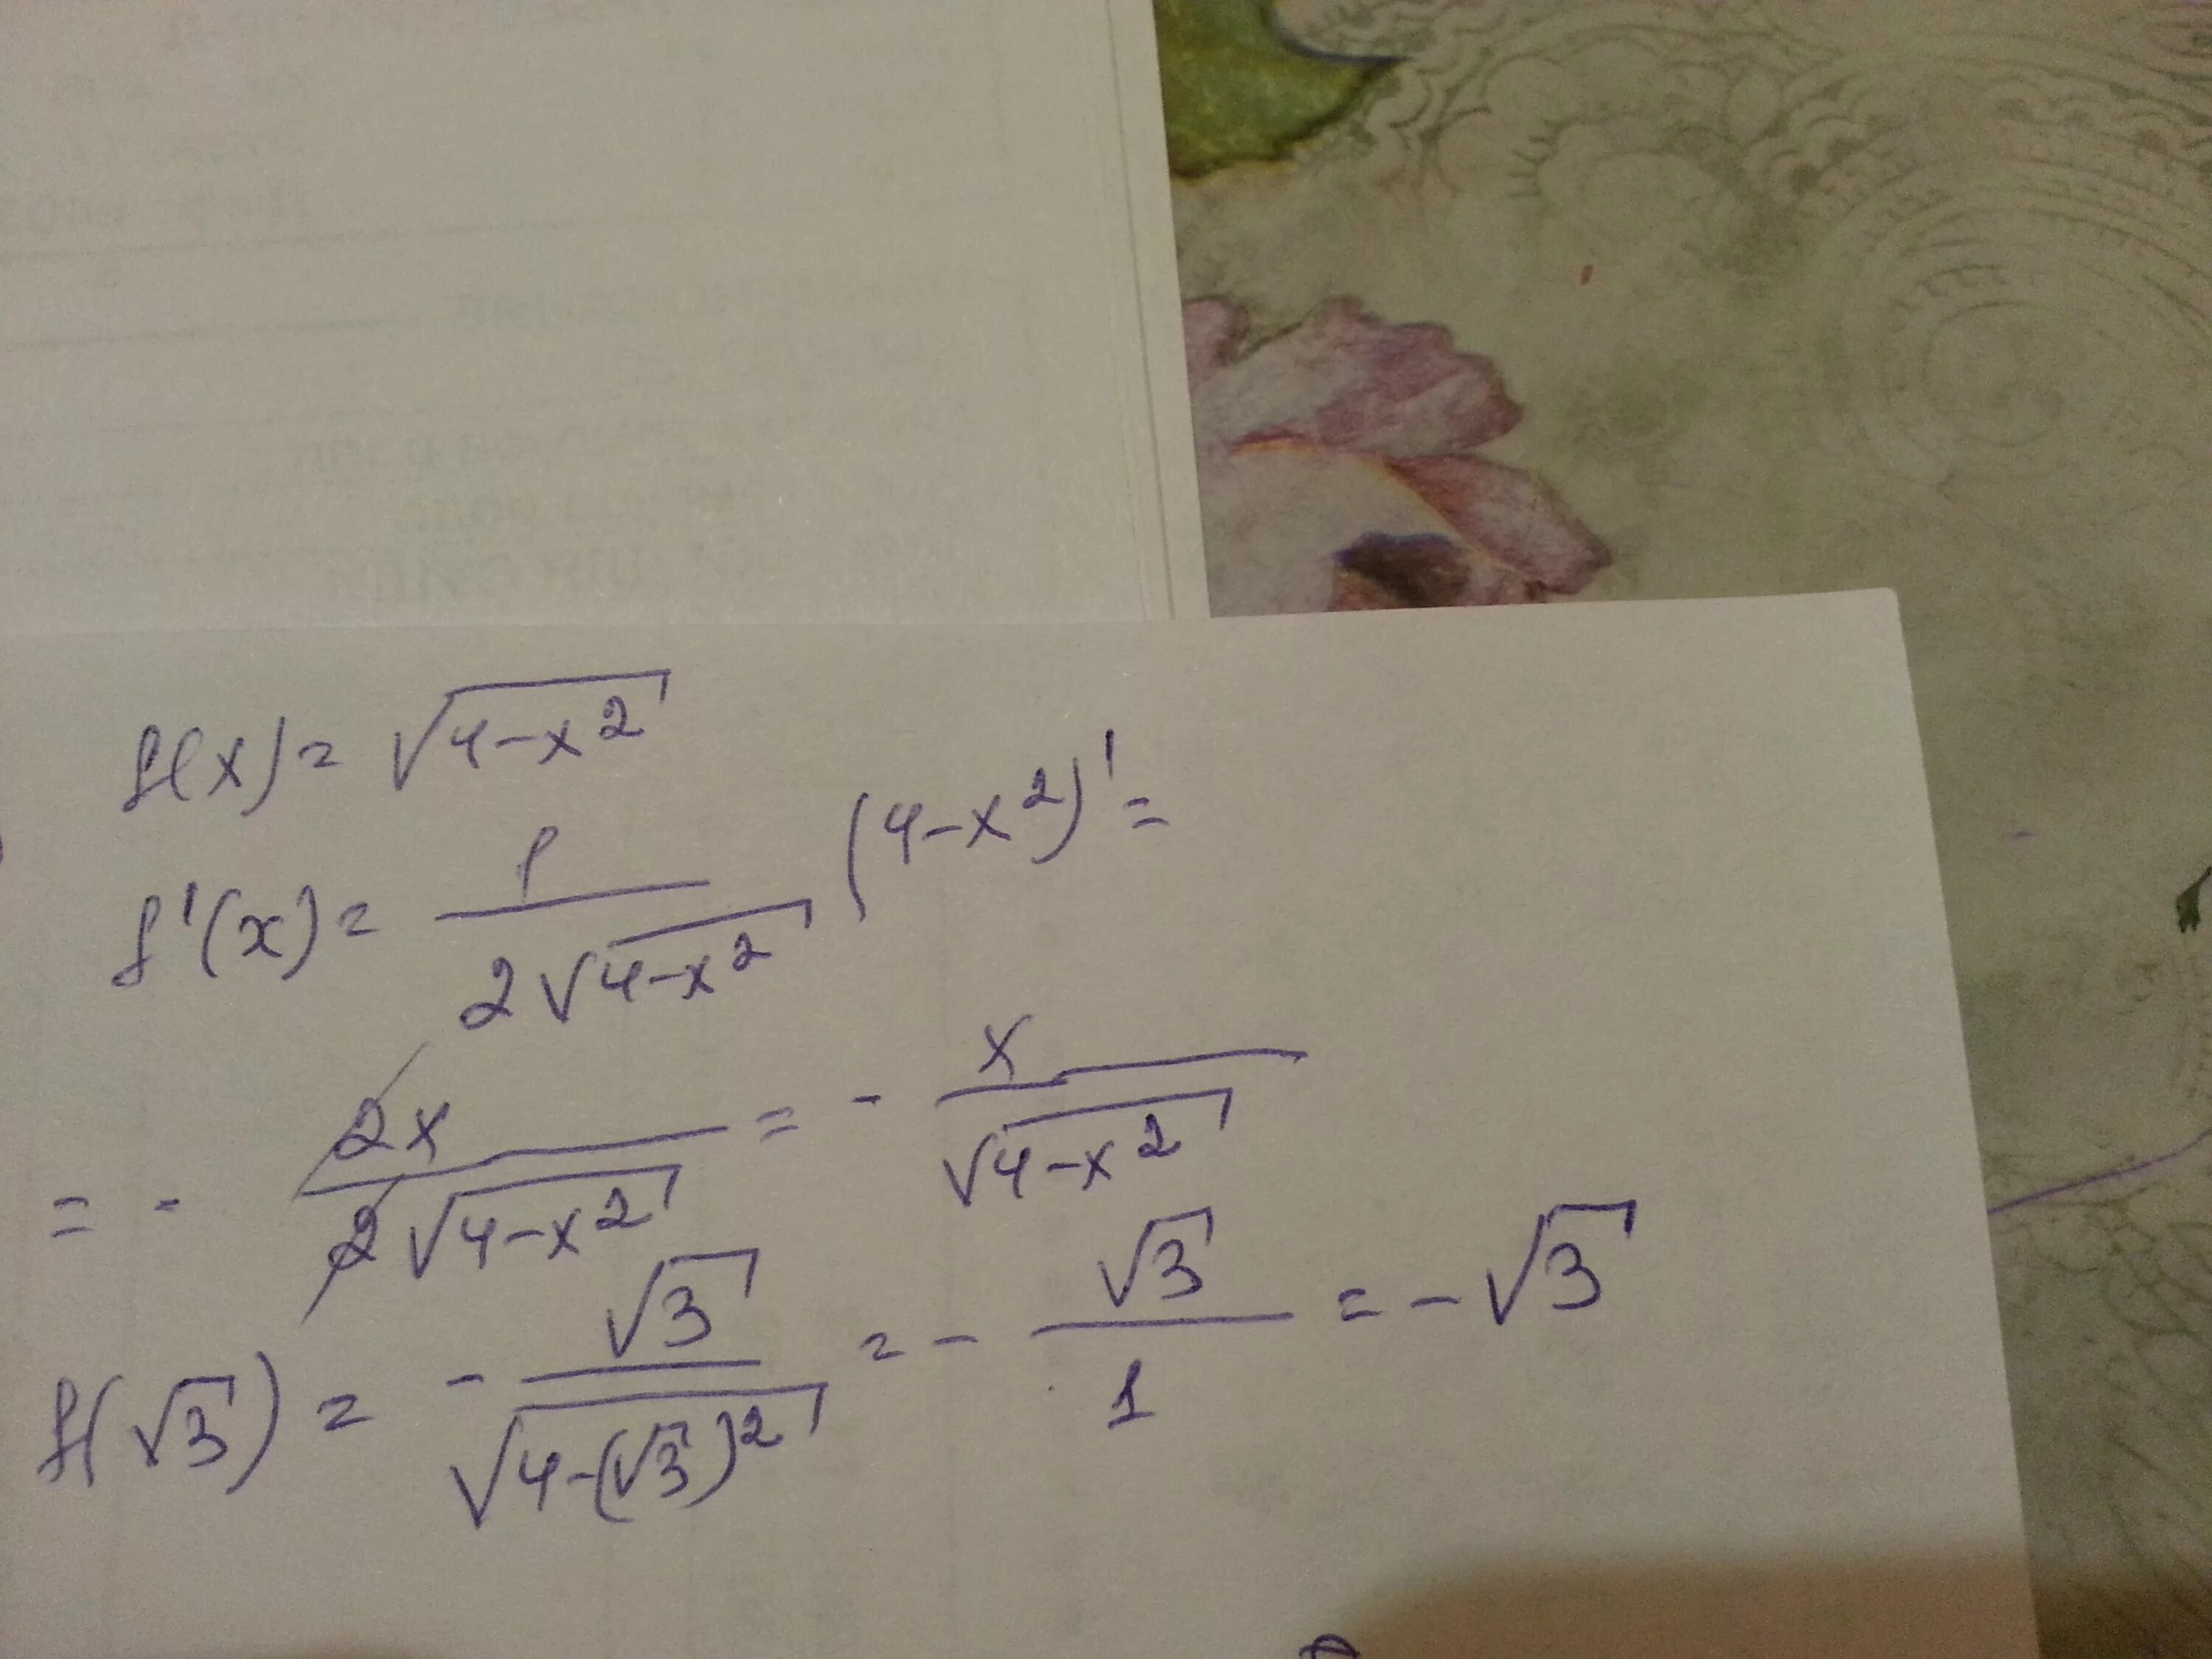 f(x) = √(4-x²)
f'(x) = 1/(2√(4-x²)) (4-x²)' =
= - 2x/(2√(4-x²)) = - x/√(4-x²)
f(√3) = - √3/√(4-(√3)²) = - √3/1 = -√3